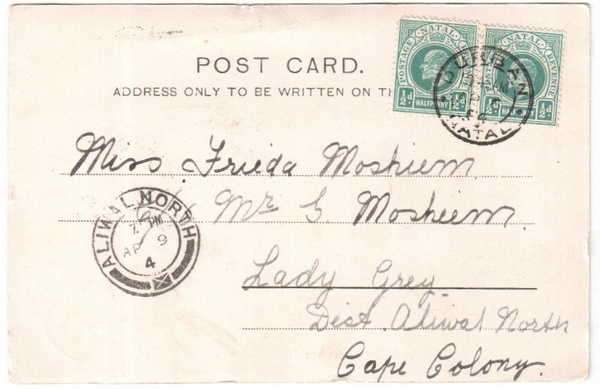 POST CARD.
ADDRESS ONLY TO BE WRITTEN ON TH
POSTAGE NATAL REVENUE
HALFPENNY
½d ½d
NATAL REVENUE
½d
DURBAN
NATAL
Miss Frieda Mosheim
Mr G Mosheim
Lady Grey
Dist. Aliwal North
Cape Colony.
ALIWAL NORTH
7 PM
AP 9
4